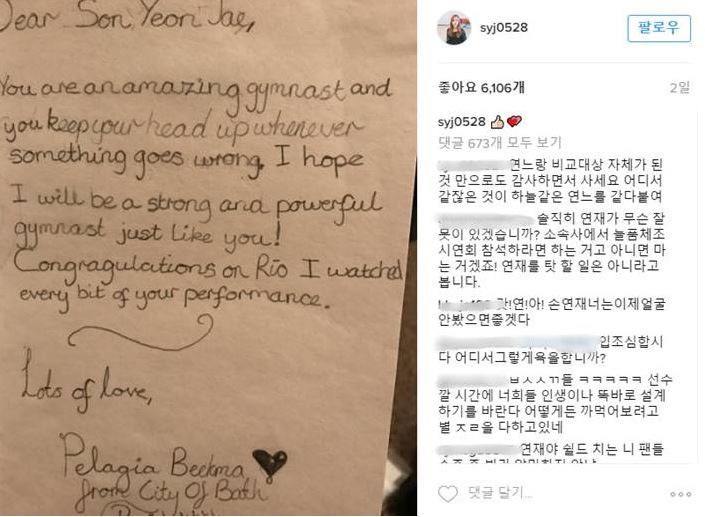 Dear Son Yeon Jae,
You are an amazing gymnast and
you keep your head up whenever
something goes wrong. I hope
I will be a strong and powerful
gymnast just like you!
Congragulations on Rio I watched
every bit of your performance.
Lots of love,
Pelagia
from City Of Bath
syj0528
팔로우
좋아요 6,106개
2일
syj0528 👍❤
댓글 673개 모두 보기
연느랑 비교대상 자체가 된
것 만으로도 감사하면서 사세요 어디서
같잖은 것이 하늘같은 연느를 같다붙여
솔직히 연재가 무슨 잘
못이 있겠습니까? 소속사에서 늘품체조
시연회 참석하라면 하는 거고 아니면 마
는 거겠죠! 연재를 탓 할 일은 아니라고
봅니다.
갓!연!아! 손연재너는이제얼굴
안봤으면좋겟다
입조심합시
다 어디서그렇게욕을합니까?
ㅂㅅㅅㄲ들 ㅋㅋㅋㅋㅋ 선수
깔 시간에 너희들 인생이나 똑바로 설계
하기를 바란다 어떻게든 까먹어보려고
별 ㅈㄹ을 다하고있네
연재야 쉴드 치는 니 팬들
댓글 달기...